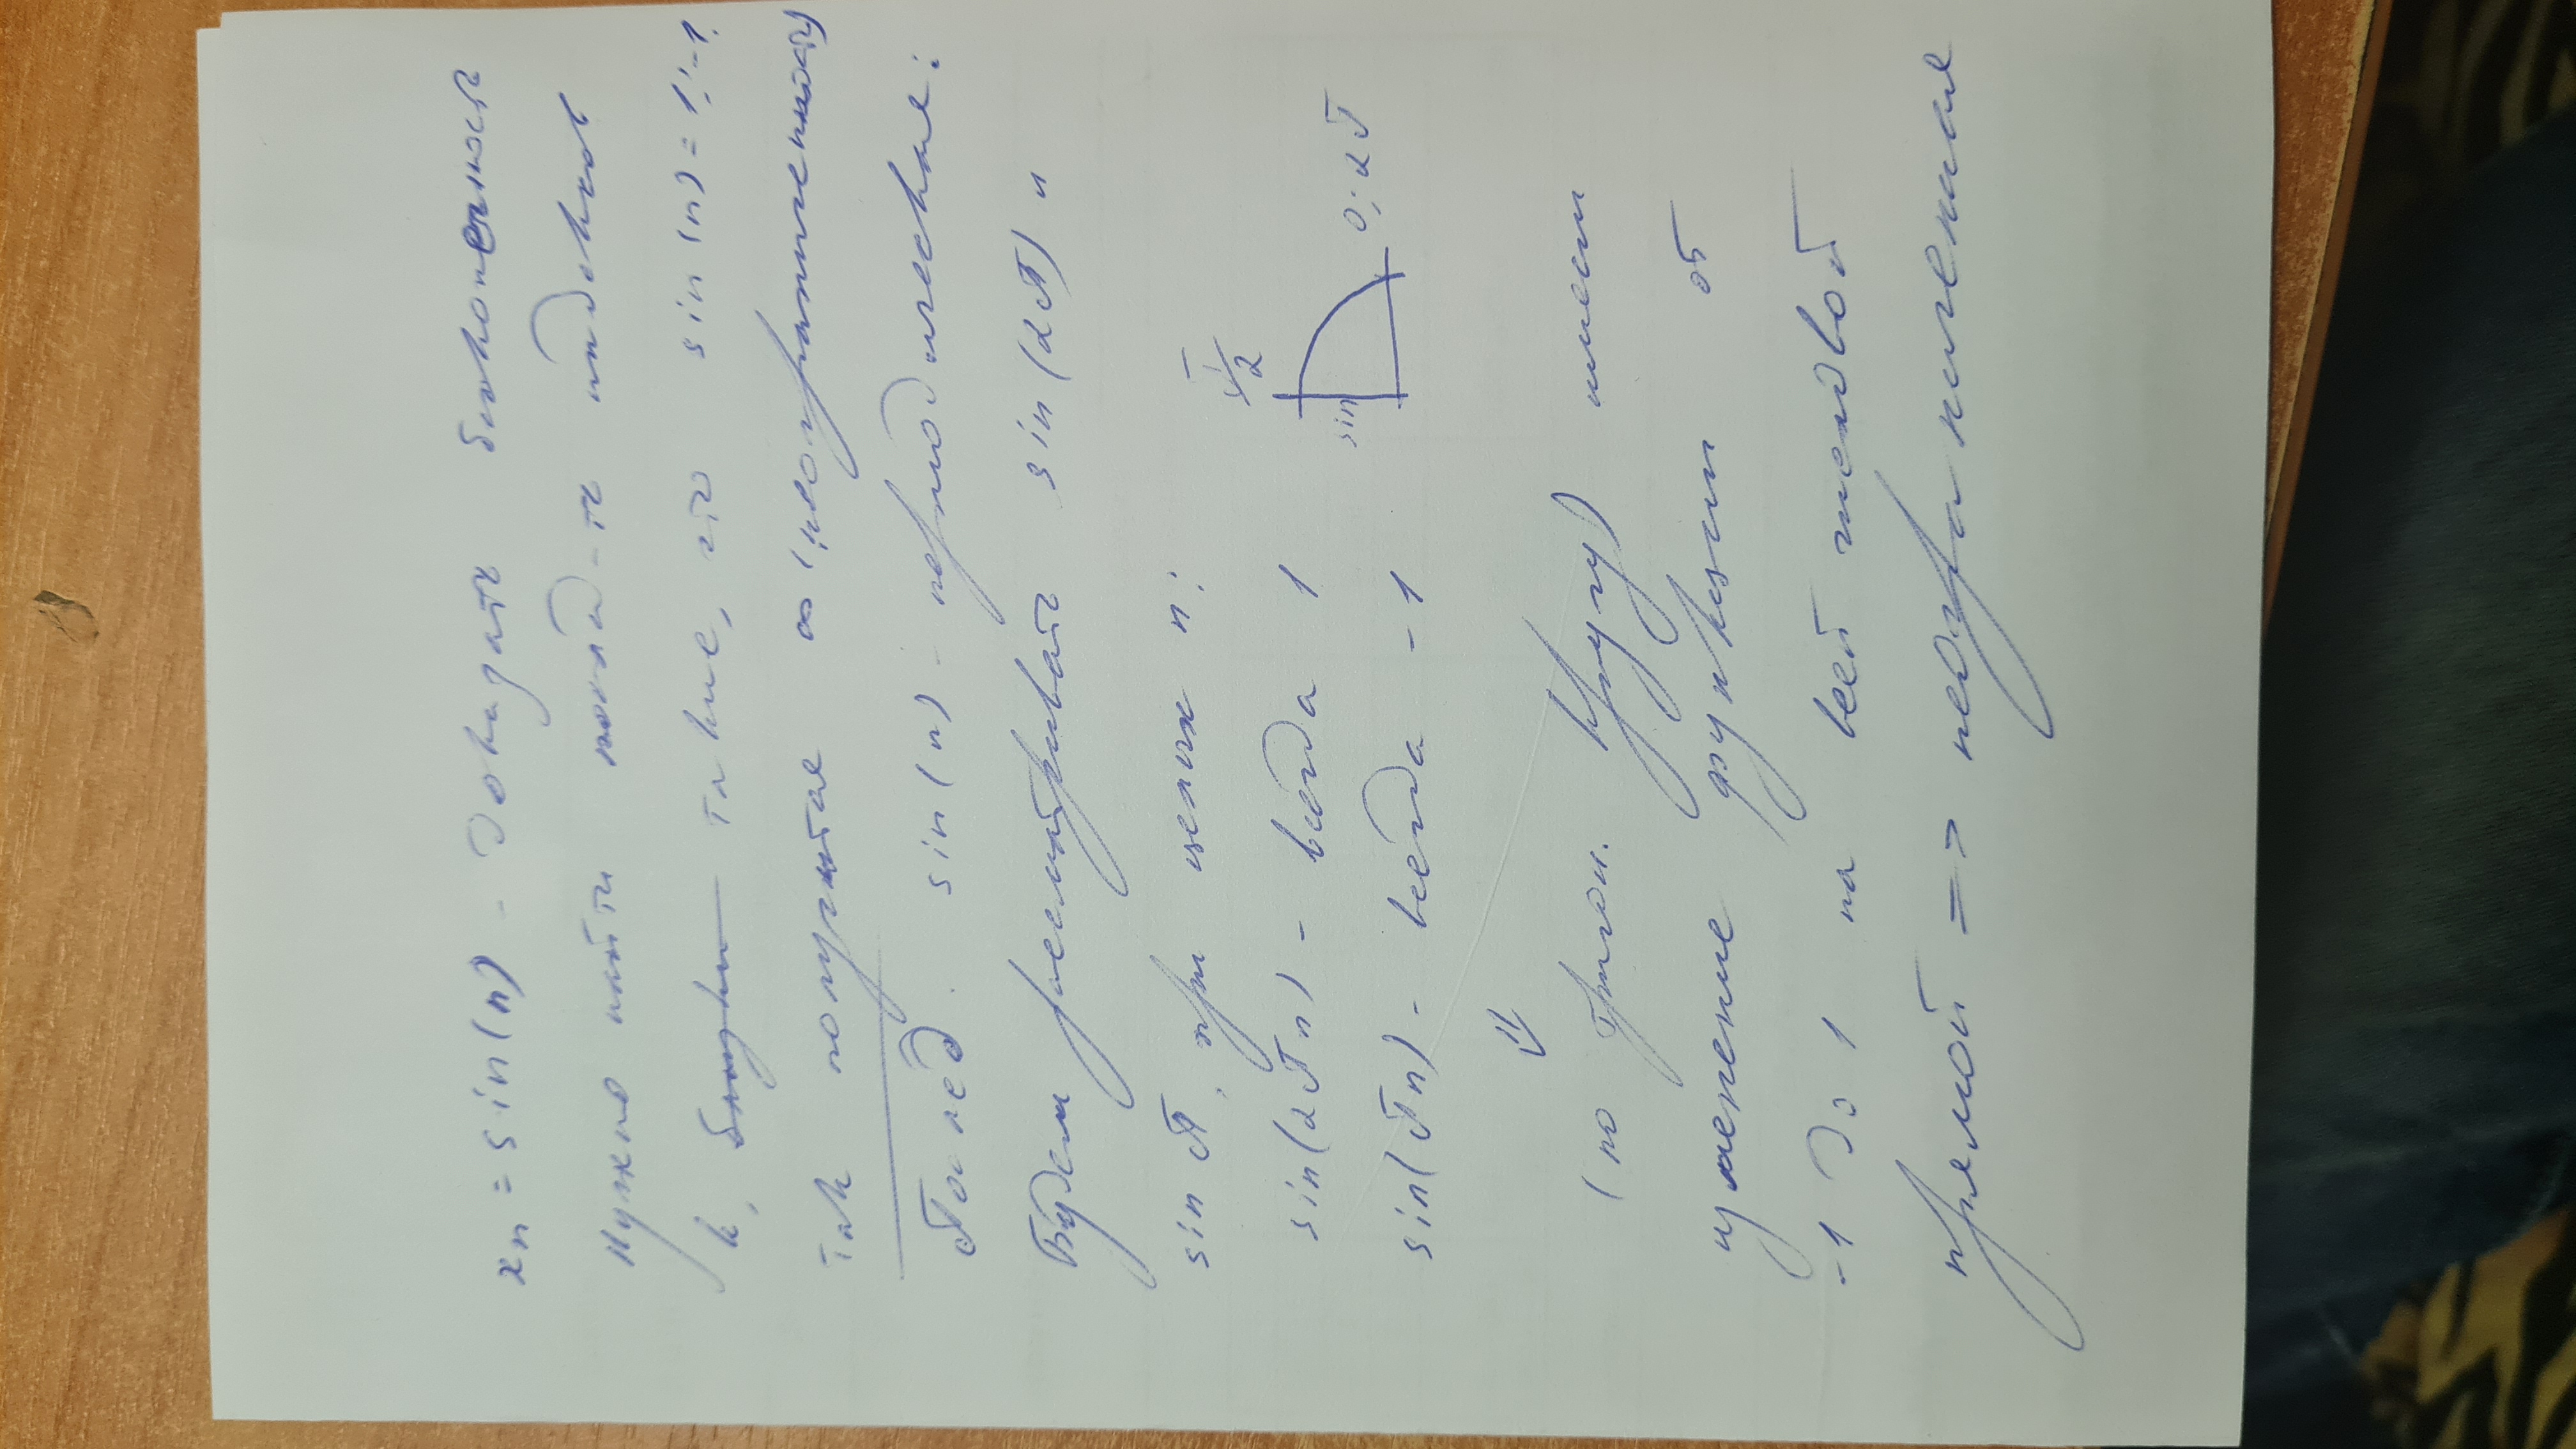 xₙ = sin(n) - Доказать бесконечность
Нужно найти послед-ть индексов
k, такие, что sin(n) = 1; -1,
так получится ∞ (неограниченность)
Послед. sin(n) - периодическая:
Будем рассматривать sin(2π) и
sin π, при целых n:
π/2
sin(2πn) - всегда 1
sin 0; 2π
sin(πn) - всегда -1
⇓
(по тригон. кругу) имеем
изменение функции от
-1 до 1 на всей числовой
прямой => неограниченная